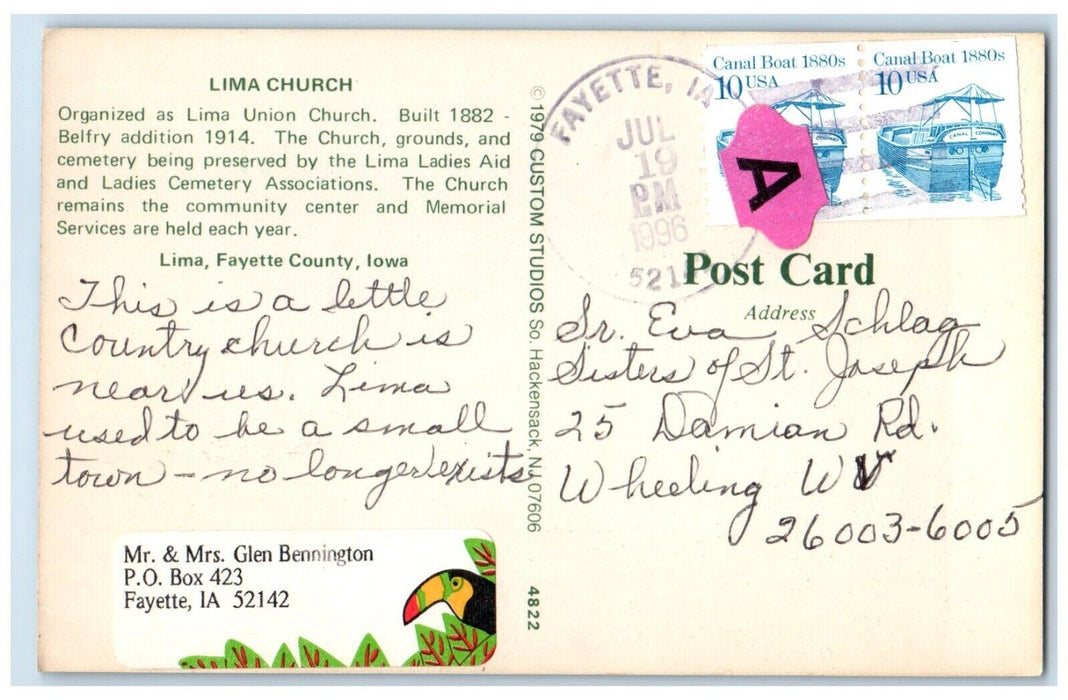 LIMA CHURCH
Organized as Lima Union Church. Built 1882 -
Belfry addition 1914. The Church, grounds, and
cemetery being preserved by the Lima Ladies Aid
and Ladies Cemetery Associations. The Church
remains the community center and Memorial
Services are held each year.
Lima, Fayette County, Iowa
This is a little
country church is
near us. Lima
used to be a small
town - no longer exists
Mr. & Mrs. Glen Bennington
P.O. Box 423
Fayette, IA 52142
© 1979 CUSTOM STUDIOS So. Hackensack, NJ 07606
4822
FAYETTE, IA
JUL
19
PM
1996
Canal Boat 1880s
10 USA
Canal Boat 1880s
10 USA
CANAL
A
Post Card
Address
Sr. Eva Schlag
Sisters of St. Joseph
25 Damian Rd.
Wheeling WV
26003-6005